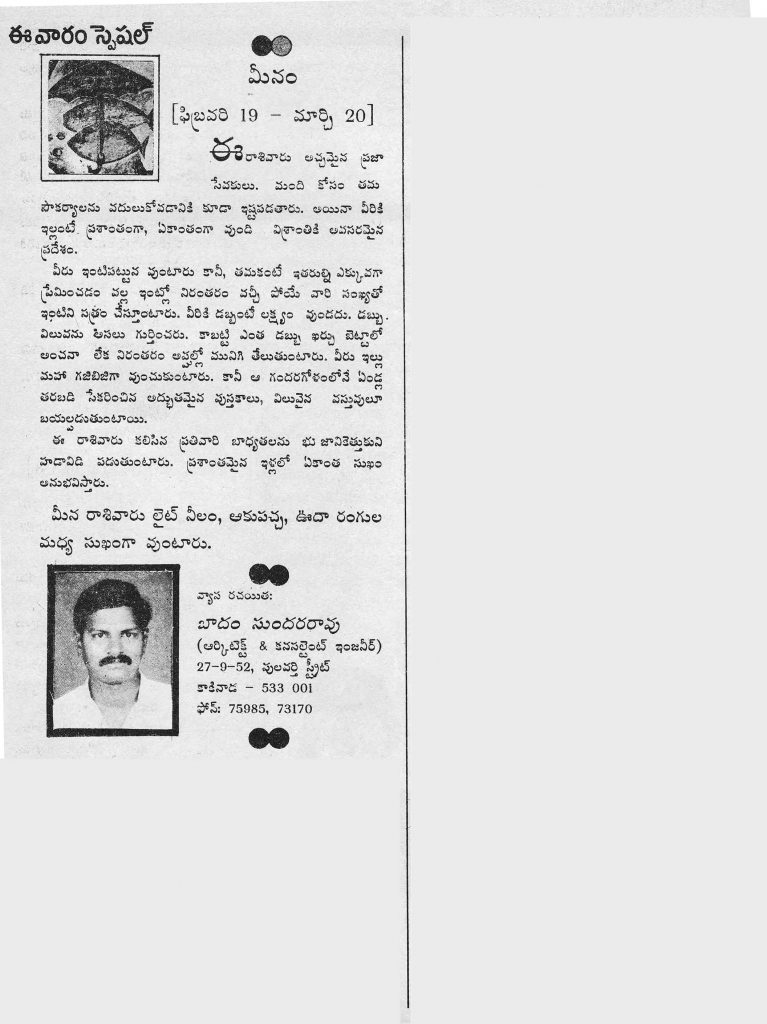 ఈ వారం స్పెషల్
మీనం
[ఫిబ్రవరి 19 - మార్చి 20]
ఈ రాశివారు అచ్చమైన ప్రజా
సేవకులు. మంది కోసం తమ
సౌకర్యాలను వదులుకోవడానికి కూడా ఇష్టపడతారు. అయినా వీరికి
ఇల్లంటే ప్రశాంతంగా, ఏకాంతంగా వుండి విశ్రాంతికి అవసరమైన
ప్రదేశం.
వీరు ఇంటిపట్టున వుంటారు కానీ, తమకంటే ఇతరుల్ని ఎక్కువగా
ప్రేమించడం వల్ల ఇంట్లో నిరంతరం వచ్చీ పోయే వారి సంఖ్యతో
ఇంటిని సత్రం చేస్తూంటారు. వీరికి డబ్బంటే లక్ష్యం వుండదు. డబ్బు
విలువను అసలు గుర్తించరు. కాబట్టి ఎంత డబ్బు ఖర్చు బెట్టాలో
అంచనా లేక నిరంతరం అప్పుల్లో మునిగి తేలుతుంటారు. వీరు ఇల్లు
మహా గజిబిజిగా వుంచుకుంటారు. కానీ ఆ గందరగోళంలోనే ఏండ్ల
తరబడి సేకరించిన అద్భుతమైన పుస్తకాలు, విలువైన వస్తువులూ
బయల్పడుతుంటాయి.
ఈ రాశివారు కలిసిన ప్రతివారి బాధ్యతలను భుజానికెత్తుకుని
హడావిడి పడుతుంటారు. ప్రశాంతమైన ఇళ్లలో ఏకాంత సుఖం
అనుభవిస్తారు.
మీన రాశివారు లైట్ నీలం, ఆకుపచ్చ, ఊదా రంగుల
మధ్య సుఖంగా వుంటారు.
వ్యాస రచయిత:
బాదం సుందరరావు
(ఆర్కిటెక్ట్ & కనసల్టెంట్ ఇంజనీర్)
27-9-52, వులవర్తి స్ట్రీట్
కాకినాడ - 533 001
ఫోన్: 75985, 73170